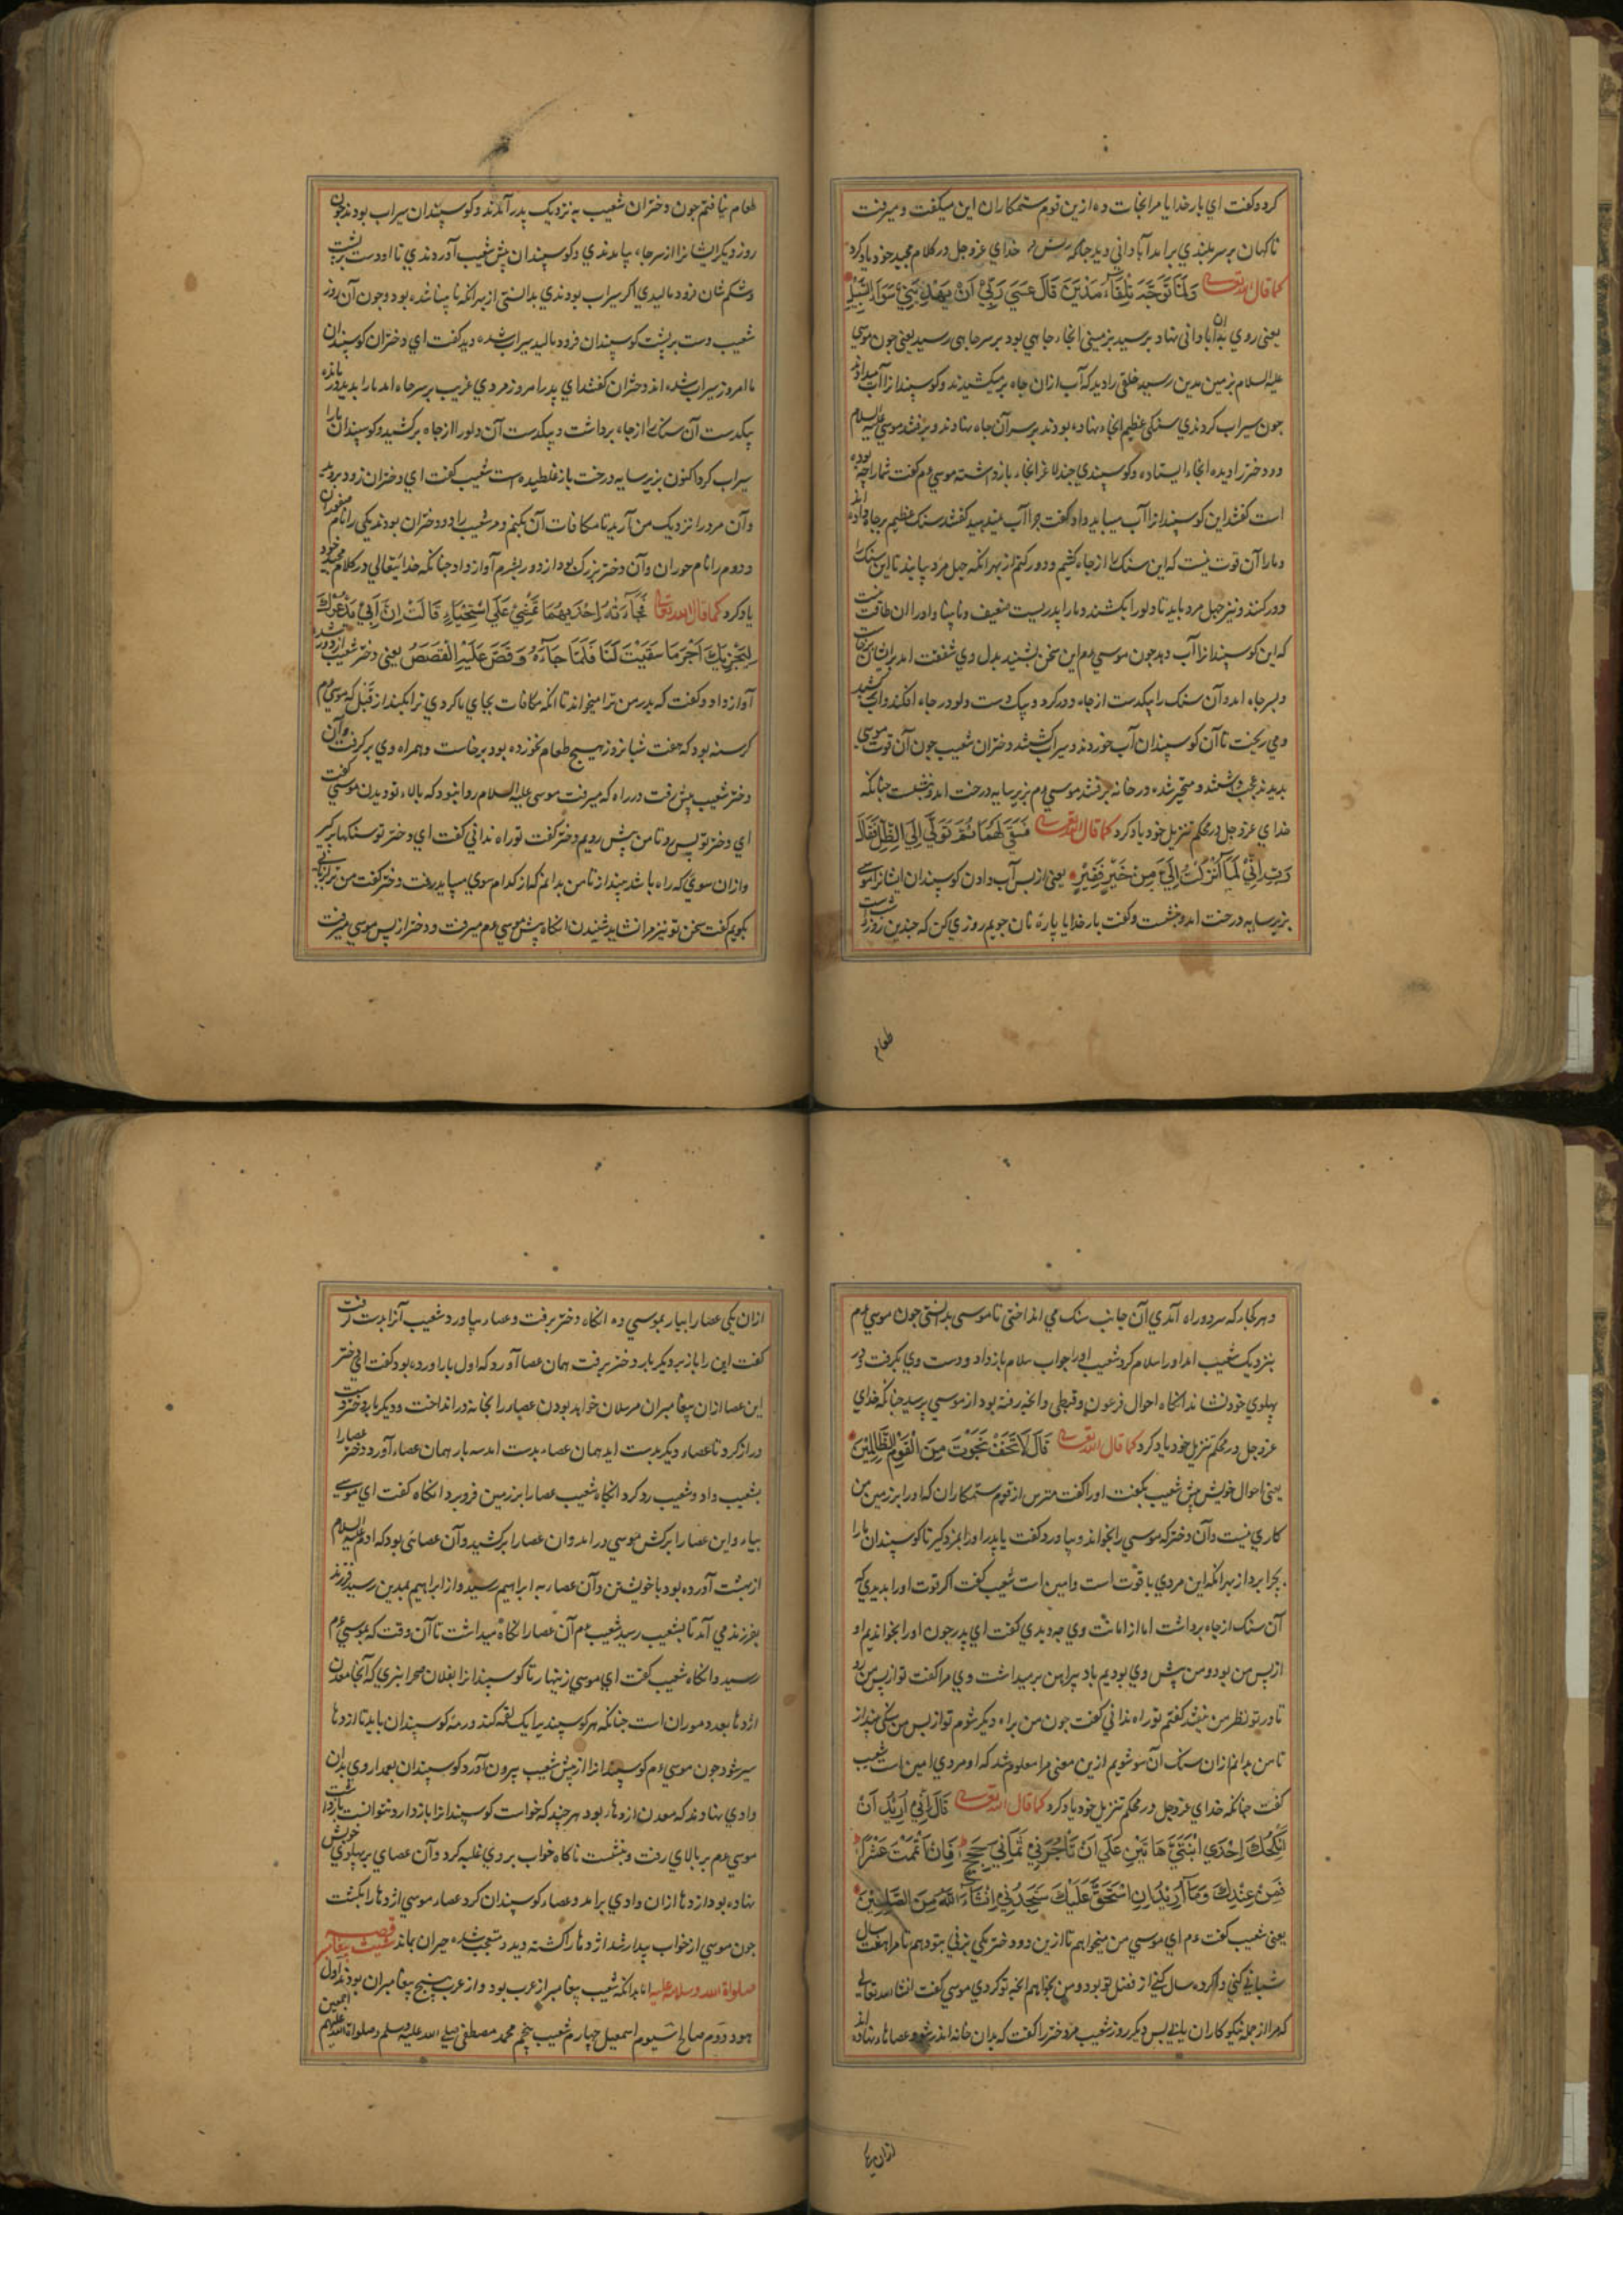 کرد و کفت ای بار خدایا مرا نجات ده ازین قوم ستمکاران این میکفت و میرفت
ناکهان بر سر بلندی برامد آبادانی دید جنانکه خدای عز و جل در کلام مجید خود یاد کرد
کما قال الله تعالی وَلَمَّا تَوَجَّهَ تِلْقَاءَ مَدْيَنَ قَالَ عَسَى رَبِّي أَنْ يَهْدِيَنِي سَوَاءَ السَّبِيلِ
یعنی روی بدان آبادانی نهاد برسید بزمینی انجا جاهی بود بر سر جاهی رسید یعنی جون موسی
علیه السلام بزمین مدین رسید خلقی را دید که آب ازان جاه بر میکشیدند و کوسپندانرا آب میدادند
جون سیراب کردندی سنکی عظیم انجا نهاده بودند بر سر آن جاه نهادند و برفتند موسی علیه السلام
دو دختر را دیده انجا ایستاده و کوسپندی جند لاغر انجا باز داشته موسی ءم کفت شما را جه بوده
است کفتند این کوسپندانرا آب میباید داد کفت جرا آب نمیدهید کفتند سنک عظیم بر جاه نهاده اند
و ما را آن قوت نیست که این سنک را از جاه کشیم و دور کنیم از بهر انکه جهل مرد بیایند تا این سنک را
دور کنند و نیز جهل مرد باید تا دلو را بکشند و ما را پدریست ضعیف و نابینا و او را ان طاقت نیست
که این کوسپندانرا آب دهد جون موسی ءم این سخن بشنید بدل وی شفقت امد برایشان برخاست
و بسر جاه امد و آن سنک را بیکدست از جاه دور کرد و بیک دست دلو در جاه افکند و آب کشید
و می ریخت تا آن کوسپندان آب خوردند و سیراب کشتند دختران شعیب جون آن قوت موسی
بدیدند عجب داشتند و متحیر شده در خانه برفتند موسی ءم بزیر سایه درخت امد و بنشست جنانکه
خدای عز و جل در محکم تنزیل خود یاد کرد کما قال الله تعالی فَسَقَى لَهُمَا ثُمَّ تَوَلَّى إِلَى الظِّلِّ فَقَالَ
رَبِّ إِنِّي لِمَا أَنْزَلْتَ إِلَيَّ مِنْ خَيْرٍ فَقِيرٌ یعنی از بس آب دادن کوسپندان ایشانرا موسی
بزیر سایه درخت امد و بنشست و کفت بار خدایا پاره نان جویم روزی کن که جندین روز است
طعام
طعام نیافتم جون دختران شعیب به نزدیک پدر آمدند و کوسپندان سیراب بودند جون
روز دیکر ایشانرا از سر جاه بیامدندی و کوسپندان پیش شعیب آوردندی تا او دست بر پشت
و شکم شان فرود مالیدی اکر سیراب بودندی بدانستی از بهر انکه نابینا شده بود و جون آن روز
شعیب دست بر پشت کوسپندان فرود مالید سیراب شده دید کفت ای دختران کوسپندان
ما امروز سیراب شده اند دختران کفتند ای پدر امروز مردی غریب بر سر جاه امد ما را بدید
بیکدست آن سنک را از جاه برداشت و بیکدست آن دلو را از جاه برکشید و کوسپندان ما را
سیراب کرد اکنون بزیر سایه درخت باز غلطیده است شعیب کفت ای دختران زود بروید
و آن مرد را نزدیک من آرید تا مکافات آن بکنم و مر شعیب را دو دختران بودند یکی را نام صفوران
و دوم را نام حوران و آن دختر بزرک بود از دور بشرم آواز داد جنانکه خدایتعالی در کلام مجید خود
یاد کرد کما قال الله تعالی فَجَاءَتْهُ إِحْدَيهُمَا تَمْشِي عَلَى اسْتِحْيَاءٍ قَالَتْ إِنَّ أَبِي يَدْعُوكَ
لِيَجْزِيَكَ أَجْرَ مَا سَقَيْتَ لَنَا فَلَمَّا جَاءَهُ وَقَصَّ عَلَيْهِ الْقَصَصَ یعنی دختر شعیب از دور
آواز داد و کفت که پدر من ترا میخواند تا انکه مکافات بجای ما کردی ترا بکند از قبل که موسی ءم
کرسنه بود که هفت شبانروز هیج طعام نخورده بود برخاست و همراه وی برکرفت و آن
دختر شعیب پیش رفت در راه که میرفت موسی علیه السلام روا نبود که بالاء تو دیدن موسی کفت
ای دختر تو پس رو تا من پیش رویم دختر کفت تو راه ندانی کفت ای دختر تو سنکها برکیر
و ازان سوی که راه باشد بینداز تا من بدانم که از کدام سوی میباید رفت دختر کفت من ترا بزبان
بکویم کفت سخن تو نیز مرا نشاید شنیدن انکاه پیش موسی ءم میرفت و دختر از پس موسی میرفت
و هر کجا که سر دو راه آمدی آن جانب سنک می انداختی تا موسی بدانستی جون موسی ءم
بنزدیک شعیب امد او را سلام کرد شعیب او را جواب سلام باز داد و دست وی بکرفت و در
پهلوی خود نشاند انکاه احوال فرعون و قبطی و انجه رفته بود از موسی پرسید جنانکه خدای
عز و جل در محکم تنزیل خود یاد کرد کما قال الله تعالی قَالَ لَا تَخَفْ نَجَوْتَ مِنَ الْقَوْمِ الظَّالِمِينَ
یعنی احوال خویش پیش شعیب بکفت او را کفت مترس از قوم ستمکاران که او را بر زمین من
کاری نیست و آن دختر که موسی را بخواند و بیاورد کفت یا پدر او را بمزد کیر تا کوسپندان ما را
بجرا برد از بهر انکه این مردی با قوت است و امین است شعیب کفت اکر قوت او را بدیدی که
آن سنک از جاه برداشت اما از امانت وی جه دیدی کفت ای پدر جون او را بخواندیم او
از پس من بود و من پیش وی بودیم باد پیراهن بر میداشت وی مرا کفت تو از پس من رو
تا در تو نظر من نیفتد کفتم تو راه ندانی کفت جون من براه دیکر شوم تو از پس من سنکی بینداز
تا من بدانم ازان سنک آن سو شویم ازین معنی مرا معلوم شد که او مردی امین است شعیب
کفت جنانکه خدای عز و جل در محکم تنزیل خود یاد کرد کما قال الله تعالی قَالَ إِنِّي أُرِيدُ أَنْ
أُنْكِحَكَ إِحْدَى ابْنَتَيَّ هَاتَيْنِ عَلَى أَنْ تَأْجُرَنِي ثَمَانِيَ حِجَجٍ فَإِنْ أَتْمَمْتَ عَشْرًا
فَمِنْ عِنْدِكَ وَمَا أُرِيدُ أَنْ أَشُقَّ عَلَيْكَ سَتَجِدُنِي إِنْشَاءَ اللَّهُ مِنَ الصَّالِحِينَ
یعنی شعیب کفت ءم ای موسی من میخواهم تا ازین دو دختر یکی بزنی بتو دهم تا مرا هفت سال
شبانی کنی و اکر ده سال کنی از فضل تو بود و من نخواهم انجه تو کردی موسی کفت انشا الله تعالی
که مرا از جمله نیکوکاران یابی پس دیکر روز شعیب مر دختر را کفت که بدان خانه اندر شو عصاها نهاده اند
ازان یکی
ازان یکی عصا را بیار بموسی ده انکاه دختر برفت و عصا بیاورد شعیب آنرا بدست کرفت
کفت این را باز بر دیکر بار دختر برفت همان عصا آورد که اول بار آورده بود کفت ای دختر
این عصا ازان پیغامبران مرسلان خواهد بودن عصا را در انجا در انداخت و دیکر بار دختر دست
دراز کرد تا عصاء دیکر بدست اید همان عصاء بدست امد سه بار همان عصاء آورد دختر عصا را
بشعیب داد و شعیب رد کرد انکاه شعیب عصا را بر زمین فرو برد انکاه کفت ای موسی
بیاء و این عصا را برکش موسی درامد و ان عصا را برکشید و آن عصائی بود که ادم علیه السلام
از بهشت آورده بود با خویشتن و آن عصا به ابراهیم رسید و از ابراهیم بمدین رسید فرزند
بفرزند می آمد تا بشعیب رسید شعیب ءم آن عصا را نکاه میداشت تا آن وقت که بموسی ءم
رسید و انکاه شعیب کفت ای موسی زینهار تا کوسپندانرا بفلان صحرا نبری که آنجا معدن
اژدها بعدد موران است جنانکه هر کوسپند را یک لقمه کند و رمه کوسپندان باید تا ازدها
سیر شود جون موسی ءم کوسپندانرا از پیش شعیب بیرون آورد کوسپندان بعمدا روی بدان
وادی نهادند که معدن ازدها بود هر جند که خواست کوسپندانرا باز دارد نتوانست باز داشت
موسی ءم بر بالای رفت و بنشست ناکاه خواب بر وی غلبه کرد و آن عصای بر پهلوی خویش
نهاده بود ازدها ازان وادی برامد و عصاء کوسپندان کرد عصاء موسی اژدها را بکشت
جون موسی از خواب بیدار شد اژدها را کشته دید و متعجب شده حیران بماند قصه شعیب پیغامبر
صلواة الله و سلامه علیه اما بدانکه شعیب پیغامبر از عرب بود و از عرب پنج پیغامبران بودند اول
هود دوم صالح سیوم اسمعیل چهارم شعیب پنجم محمد مصطفی صلی الله علیه وسلم و صلواة الله علیهم اجمعین